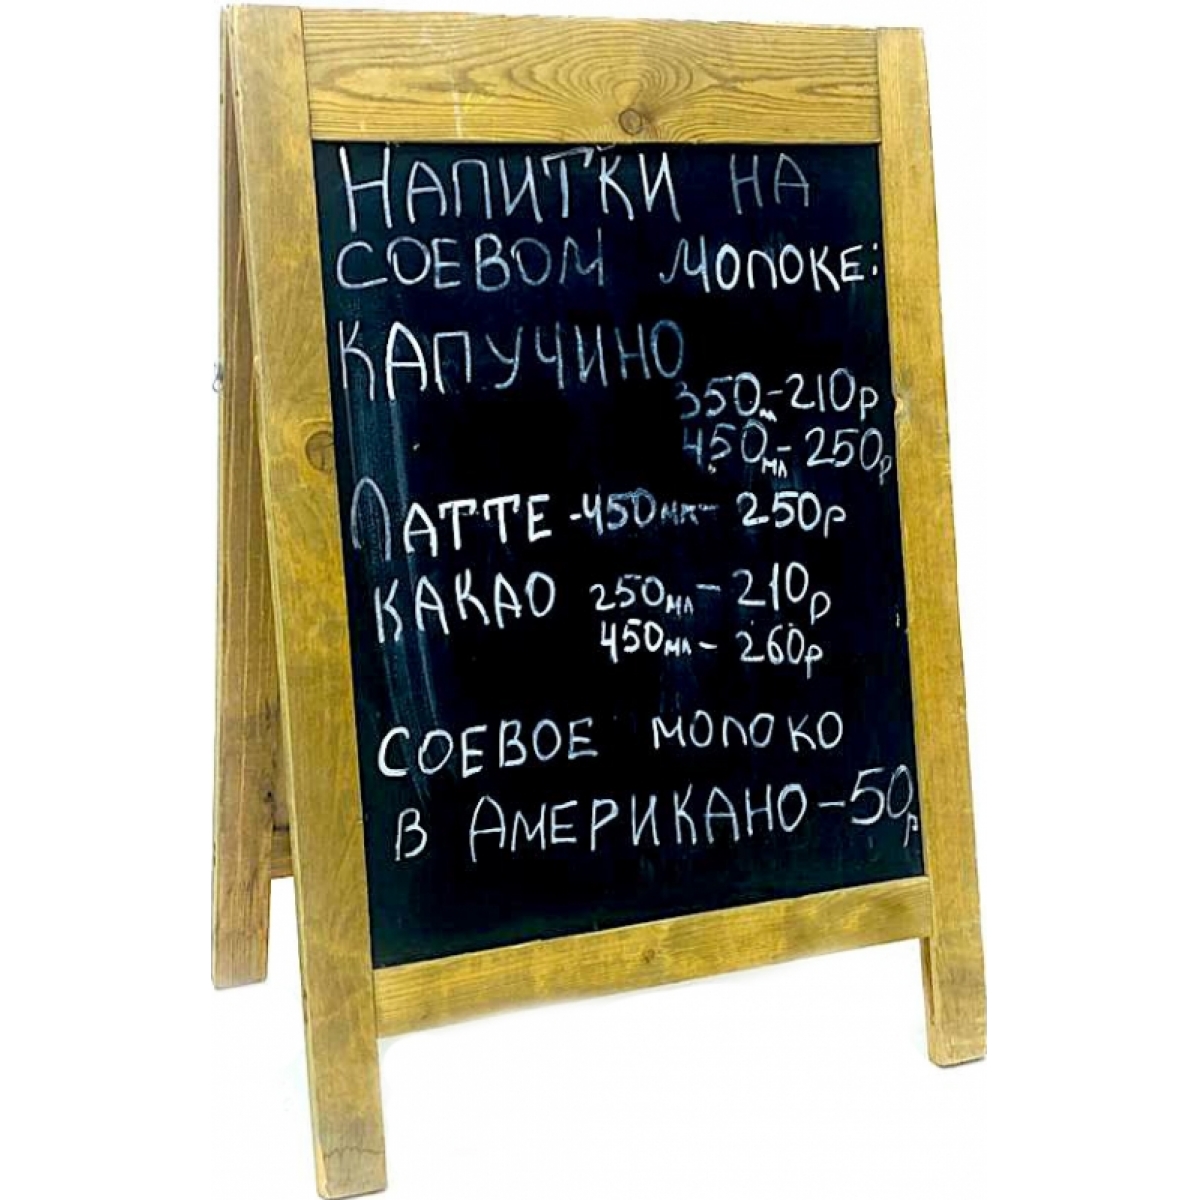 Напитки на
соевом молоке:
Капучино
350мл-210р
450мл-250р
Латте-450мл-250р
Какао 250мл-210р
450мл-260р
Соевое молоко
в Американо-50р